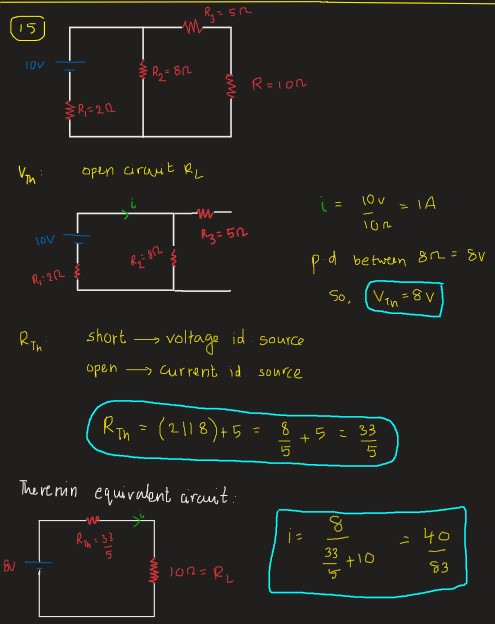 15
R₃ = 5Ω
10V
R₂ = 8Ω
R = 10Ω
R₁ = 2Ω
V_Th : open circuit R_L
i
10V
R₃ = 5Ω
R₂ = 8Ω
R₁ = 2Ω
i = 10V / 10Ω = 1A
p.d between 8Ω = 8V
So, V_Th = 8V
R_Th : short → voltage id source
open → current id source
R_Th = (2||8) + 5 = 8/5 + 5 = 33/5
Thevenin equivalent circuit :
i
R_Th = 33/5
8V
10Ω = R_L
i = 8 / (33/5 + 10) = 40/83